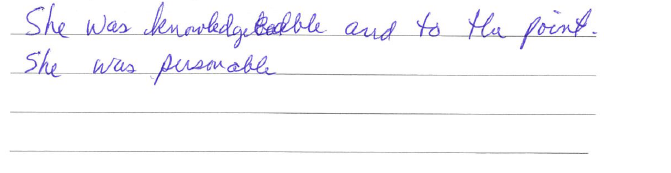 She was knowledgeable and to the point.
She was personable